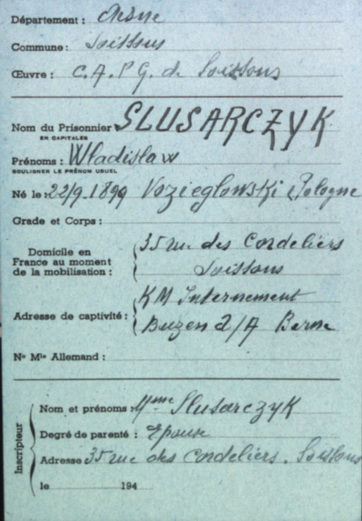 Département : Aisne
Commune : Soissons
Œuvre : C.A.P.G. de Soissons
Nom du Prisonnier SLUSARCZYK
EN CAPITALES
Prénoms : Wladislaw
SOULIGNER LE PRÉNOM USUEL
Né le 22/9.1899 Vozieglowski Pologne
Grade et Corps :
Domicile en France au moment de la mobilisation : 35 rue des Cordeliers
Soissons
Adresse de captivité : KM Internement
Buzen a/A Berne
Nº Mle Allemand :
Inscripteur
Nom et prénoms : Mme Slusarczyk
Degré de parenté : Epouse
Adresse 35 rue des Cordeliers. Soissons
le 194